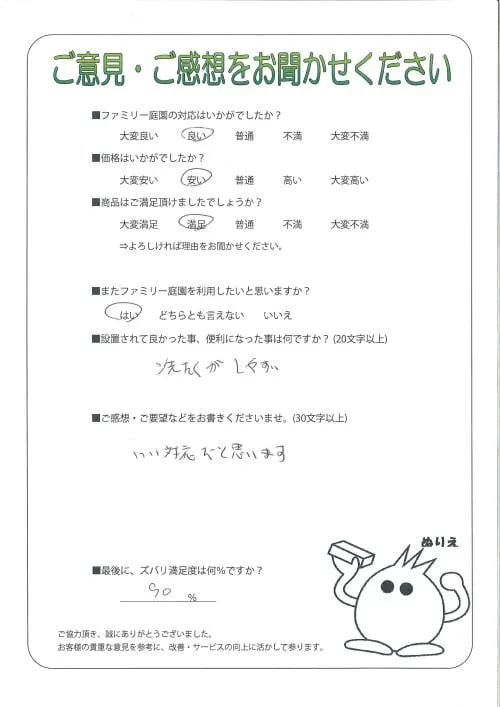 ご意見・ご感想をお聞かせください
■ファミリー庭園の対応はいかがでしたか？
大変良い 良い 普通 不満 大変不満
■価格はいかがでしたか？
大変安い 安い 普通 高い 大変高い
■商品はご満足頂けましたでしょうか？
大変満足 満足 普通 不満 大変不満
⇒よろしければ理由をお聞かせください。
■またファミリー庭園を利用したいと思いますか？
はい どちらとも言えない いいえ
■設置されて良かった事、便利になった事は何ですか？(20文字以上)
洗たくが しやすい
■ご感想・ご要望などをお書きくださいませ。(30文字以上)
いい対応だと思います
ぬりえ
■最後に、ズバリ満足度は何％ですか？
90 %
ご協力頂き、誠にありがとうございました。
お客様の貴重な意見を参考に、改善・サービスの向上に活かして参ります。